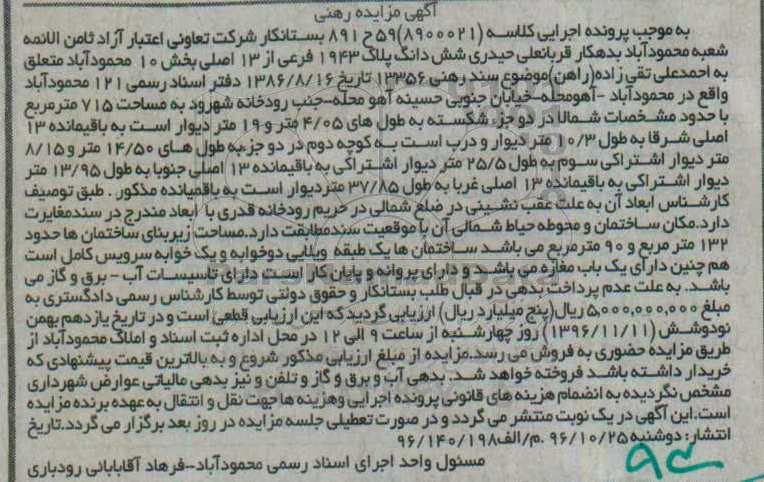 آگهی مزایده رهنی
به موجب پرونده اجرایی کلاسه (۸۹۰۰۰۲۱)۵۹ ح ۸۹۱ بستانکار شرکت تعاونی اعتبار آزاد ثامن الائمه
شعبه محمودآباد بدهکار قربانعلی حیدری شش دانگ پلاک ۱۹۴۳ فرعی از ۱۳ اصلی بخش ۱۰ محمودآباد متعلق
به احمدعلی تقی زاده(راهن)موضوع سند رهنی ۱۳۳۵۶ تاریخ ۱۳۸۶/۸/۱۶ دفتر اسناد رسمی ۱۲۱ محمودآباد
واقع در محمودآباد -آهومحله-خیابان جنوبی حسینه آهو محله-جنب رودخانه شهررود به مساحت ۷۱۵ مترمربع
با حدود مشخصات شمالا در دو جزء شکسته به طول های ۴/۰۵ متر و ۱۹ متر دیوار است به باقیمانده ۱۳
اصلی شرقا به طول ۱۰/۳ متر دیوار و درب است به کوچه دوم در دو جزء به طول های ۱۴/۵۰ متر و ۸/۱۵
متر دیوار اشتراکی سوم به طول ۲۵/۵ متر دیوار اشتراکی به باقیمانده ۱۳ اصلی جنوبا به طول ۱۳/۹۵ متر
دیوار اشتراکی به باقیمانده ۱۳ اصلی غربا به طول ۳۷/۸۵ متردیوار است به باقمیانده مذکور . طبق توصیف
کارشناس ابعاد آن به علت عقب نشینی در ضلع شمالی در حریم رودخانه قدری با ابعاد مندرج در سندمغایرت
دارد.مکان ساختمان و محوطه حیاط شمالی آن با موقعیت سندمطابقت دارد.مساحت زیربنای ساختمان ها حدود
۱۳۲ متر مربع و ۹۰ مترمربع می باشد ساختمان ها یک طبقه ویلایی دوخوابه و یک خوابه سرویس کامل است
هم چنین دارای یک باب مغازه می باشد و دارای پروانه و پایان کار است دارای تاسیسات آب - برق و گاز می
باشد. به علت عدم پرداخت بدهی در قبال طلب بستانکار و حقوق دولتی توسط کارشناس رسمی دادگستری به
مبلغ ۵,۰۰۰,۰۰۰,۰۰۰ ریال(پنج میلیارد ریال) ارزیابی گردید که این ارزیابی قطعی است و در تاریخ یازدهم بهمن
نودوشش (۱۳۹۶/۱۱/۱۱) روز چهارشنبه از ساعت ۹ الی ۱۲ در محل اداره ثبت اسناد و املاک محمودآباد از
طریق مزایده حضوری به فروش می رسد.مزایده از مبلغ ارزیابی مذکور شروع و به بالاترین قیمت پیشنهادی که
خریدار داشته باشد فروخته خواهد شد. بدهی آب و برق و گاز و تلفن و نیز بدهی مالیاتی عوارض شهرداری
مشخص نگردیده به انضمام هزینه های قانونی پرونده اجرایی وهزینه ها جهت نقل و انتقال به عهده برنده مزایده
است.این آگهی در یک نوبت منتشر می گردد و در صورت تعطیلی جلسه مزایده در روز بعد برگزار می گردد.تاریخ
انتشار: دوشنبه ۹۶/۱۰/۲۵ .م/الف۹۶/۱۴۰/۱۹۸
مسئول واحد اجرای اسناد رسمی محمودآباد-فرهاد آقابابائی رودباری